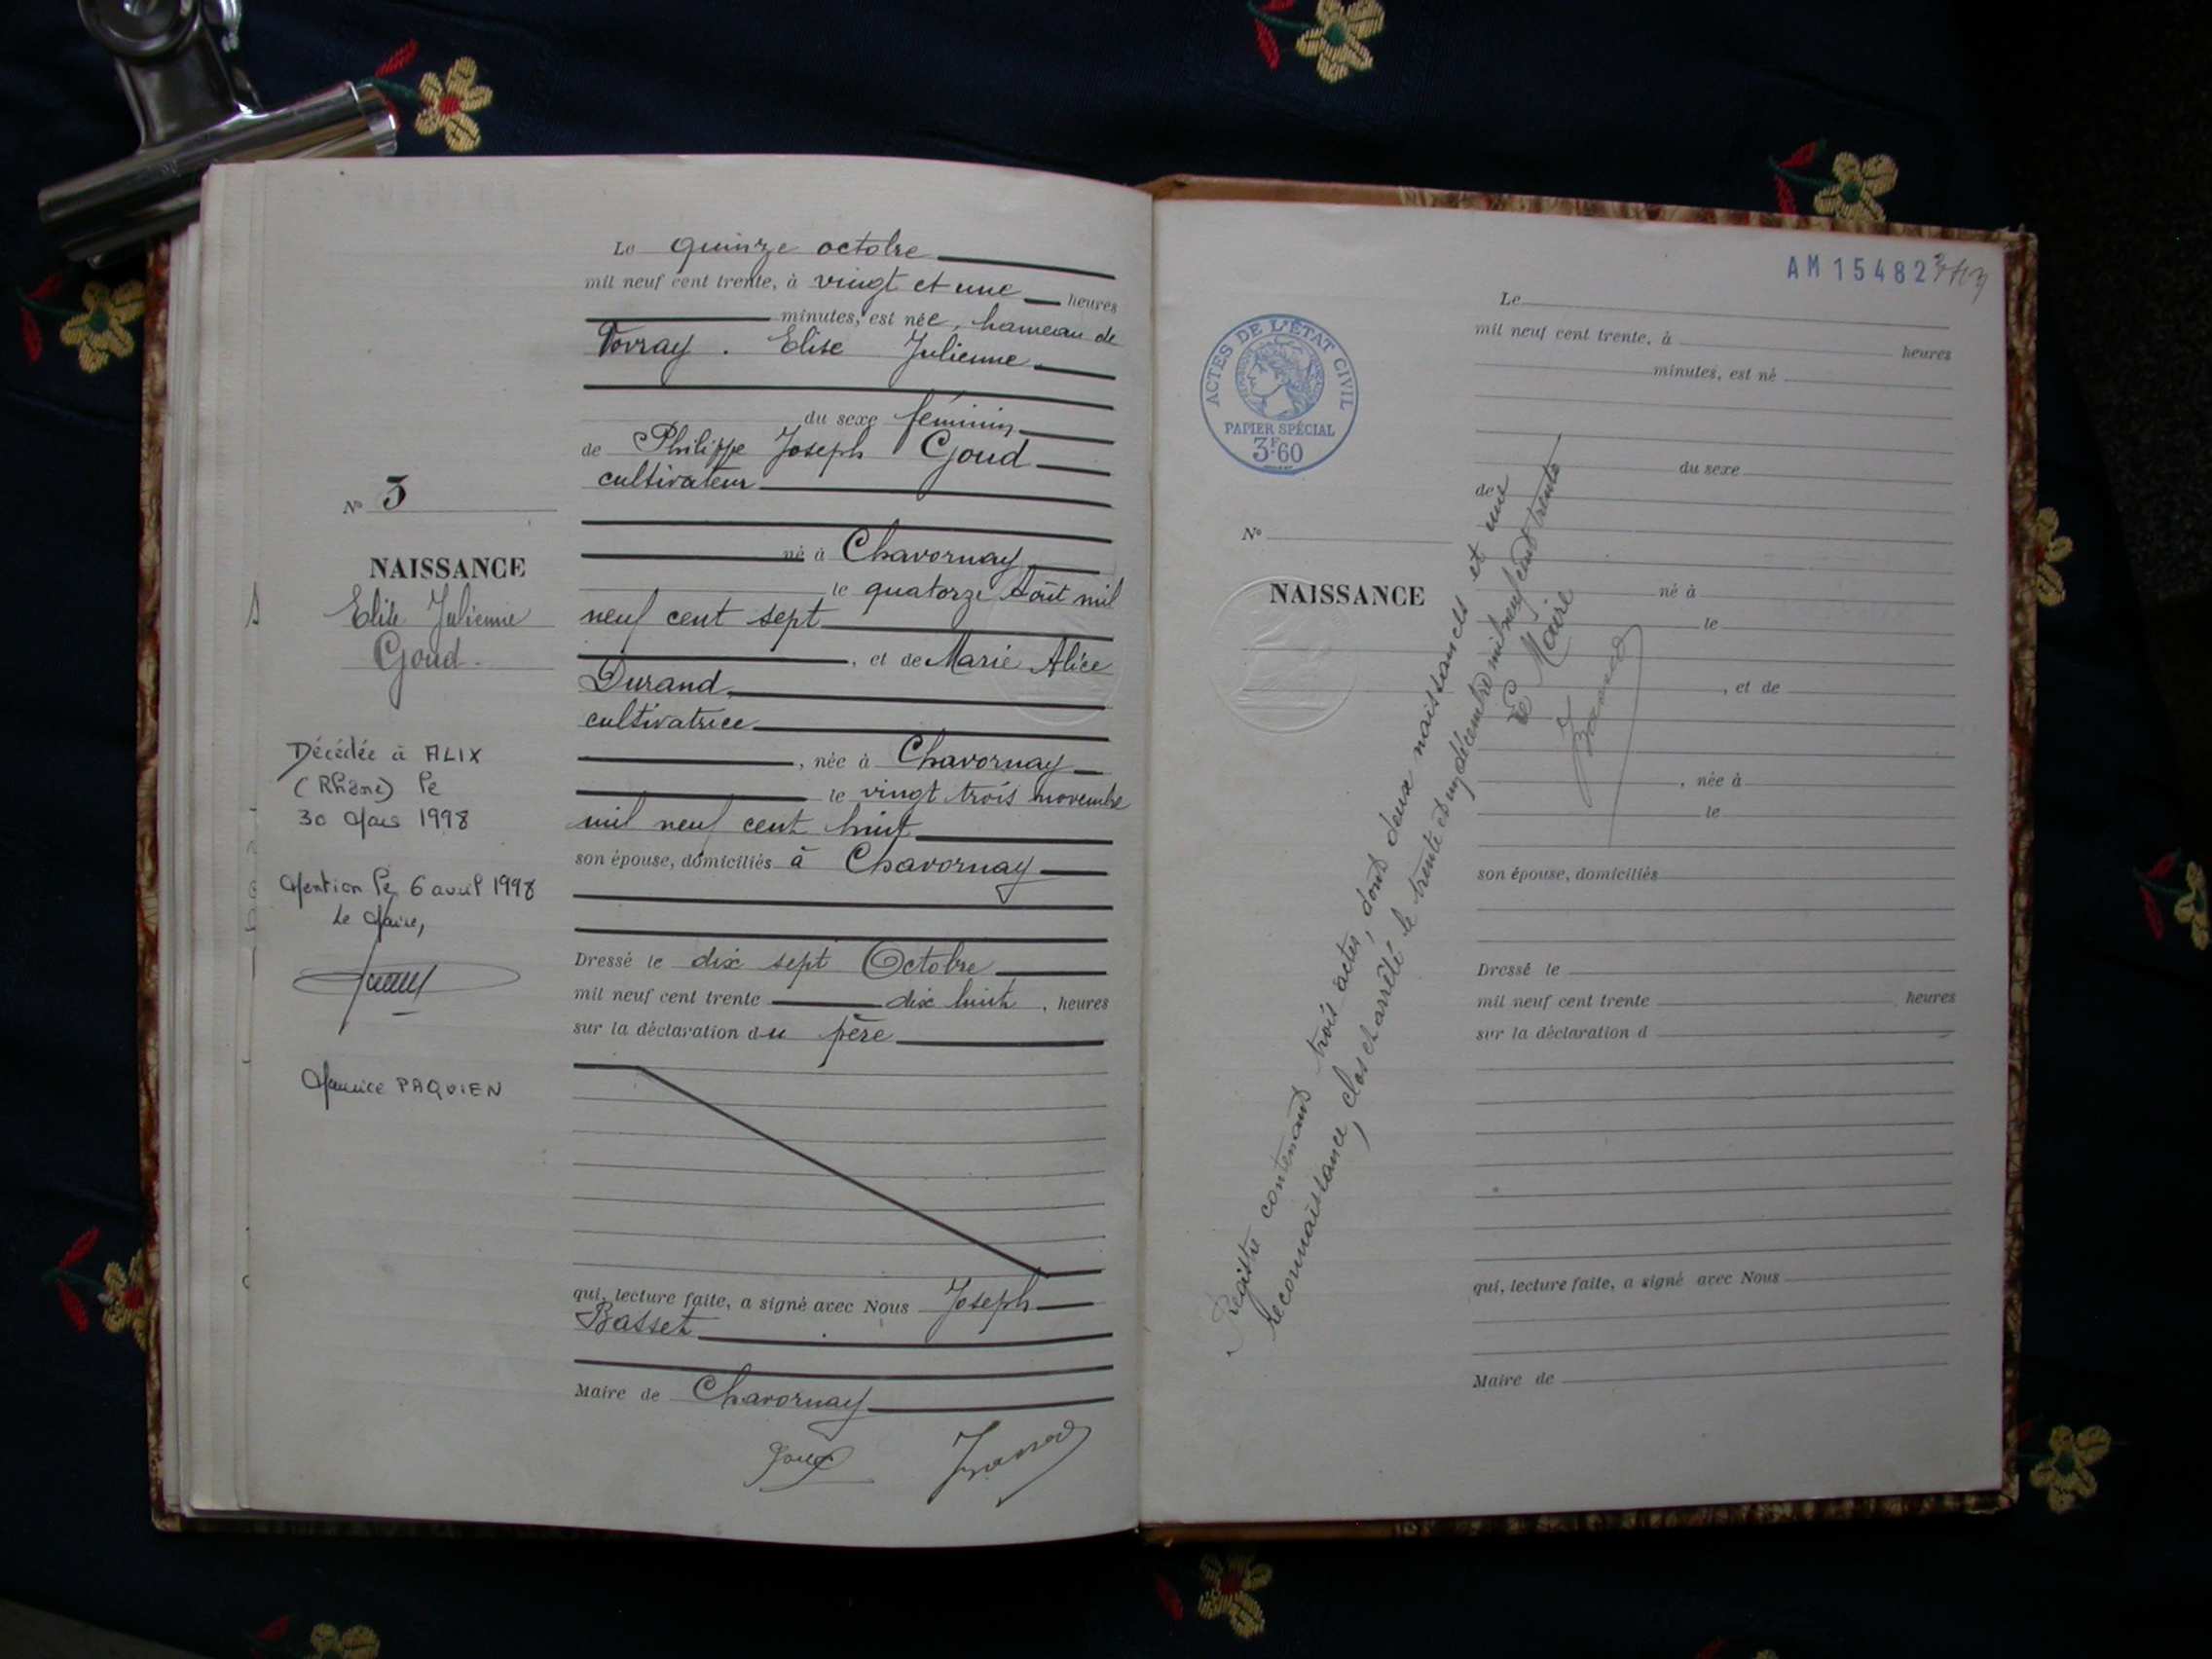 Le quinze octobre
mil neuf cent trente, à vingt et une heures
minutes, est née, hameau de
Vovray. Elise Julienne
du sexe féminin
de Philippe Joseph Goud
cultivateur
né à Chavornay
le quatorze Août mil
neuf cent sept
, et de Marie Alice
Durand
cultivatrice
, née à Chavornay
le vingt trois novembre
mil neuf cent huit
son épouse, domiciliés à Chavornay
Dressé le dix sept Octobre
mil neuf cent trente dix huit, heures
sur la déclaration du père
qui, lecture faite, a signé avec Nous Joseph
Basset
Maire de Chavornay
Nº 3
NAISSANCE
Elise Julienne
Goud.
Décédée à ALIX
(Rhône) le
30 Mars 1998
Mention le 6 avril 1998
Le Maire,
Maurice PAQUIEN
AM 15482
ACTES DE L'ÉTAT CIVIL
PAPIER SPÉCIAL
3F.60
Le
mil neuf cent trente, à heures
minutes, est né
du sexe
de
Nº
NAISSANCE
né à
le
, et de
, née à
le
son épouse, domiciliés
Dressé le
mil neuf cent trente heures
sur la déclaration d
qui, lecture faite, a signé avec Nous
Maire de
Registre contenant trois actes, dont deux naissances et une
reconnaissance, clos et arrêté le trente et un décembre mil neuf cent trente
Le Maire